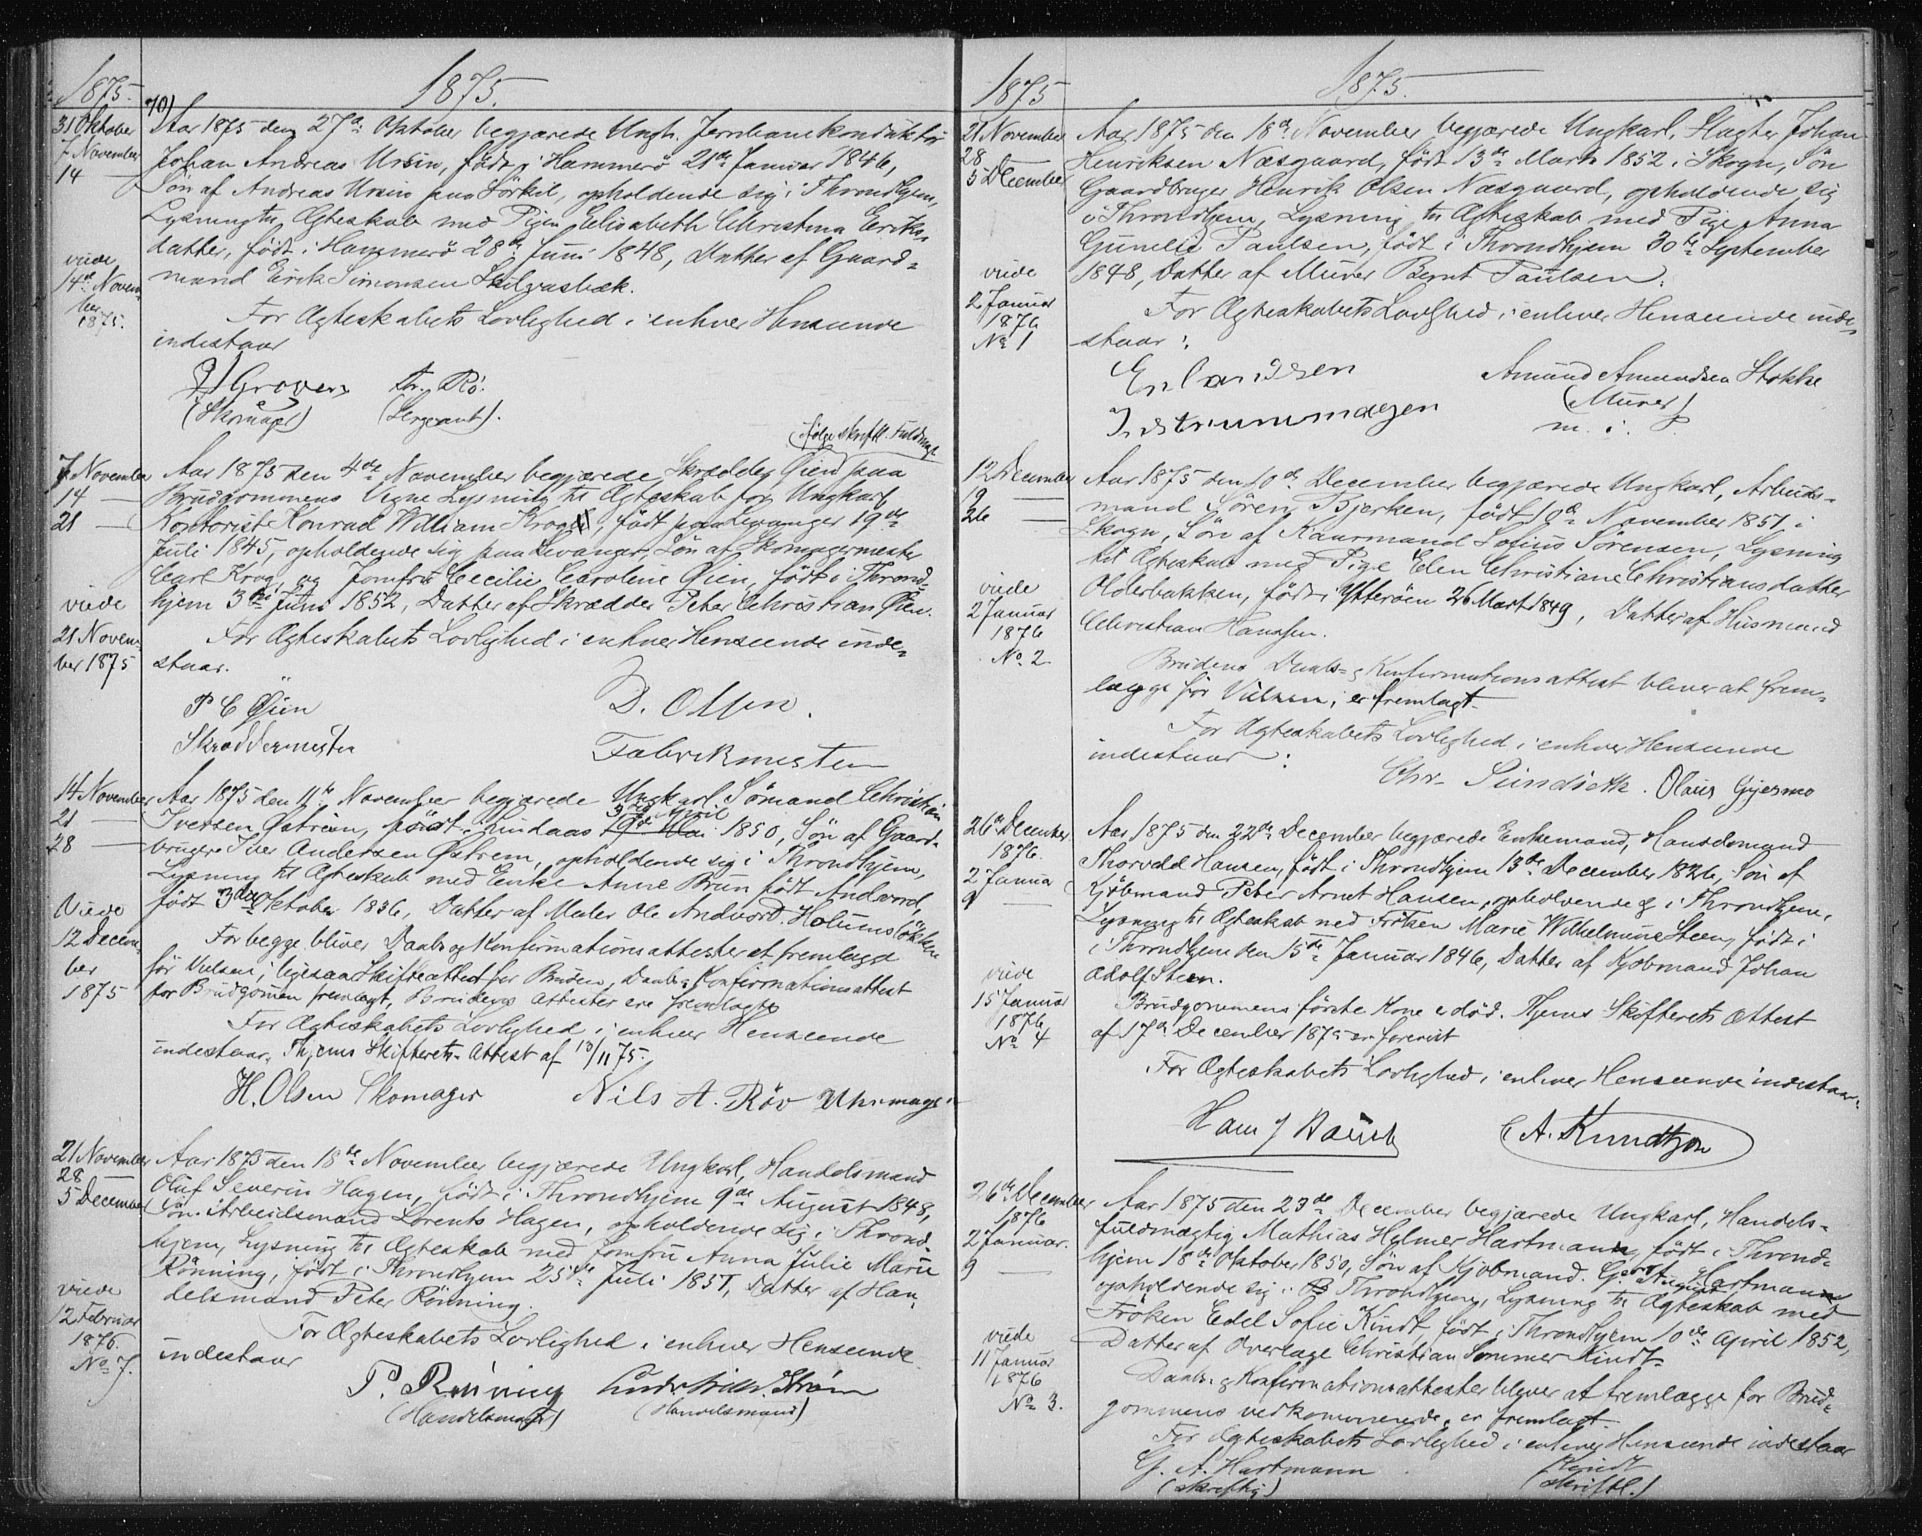 1875.
1875.
70)
31 Oktober
7 November
14 —
Aar 1875 den 27de Oktober begjærede Ungk. Jernbanekonduktör
Johan Andreas Ursin, födt i Hammerö 21de Januar 1846,
Sön af Andreas Ursin paa, opholdende sig i Throndhjem,
Lysning til Ægteskab med Pigen Elisabeth Christina Eriks-
datter, födt i Hammerö 28de Juni 1848, Datter af Gaard-
mand Erik Simonsen
viede
14de Novem-
ber
1875.
For Ægteskabets Lovlighed i enhver Henseende
indestaar
Groven Tr. Rö.
(Skomager) (Sergeant).
(følge skriftl. Fuldmagt
7 November
14 —
21 —
Aar 1875 den 4de November begjærede Skrædder Øien paa
Brudgommens Vegne Lysning til Ægteskab for Ungkarl,
Kontorist Konrad William Krog, födt paa Levanger 19de
Juli 1845, opholdende sig paa Levanger, Sön af Skomagermester
Carl Krog, og Jomfru Cecilie Caroline Øien, födt i Thrond-
hjem 3de Juni 1852, Datter af Skrædder Peter Christian Øien.
viede
21 Novem-
ber 1875
For Ægteskabets Lovlighed i enhver Henseende inde-
staar.
P C Øien D. Olsen.
Skræddermester Fabrikmester
14 November
21 —
28 —
Aar 1875 den 11te November begjærede Ungkarl, Sömand Christian
3die April
Iversen Østrem, födt i 19de Mai 1850, Sön af Gaard-
bruger Iver Andersen Østrem, opholdende sig i Throndhjem,
Lysning til Ægteskab med Enke Anne Brun födt Andvord,
födt 3die Oktober 1836, Datter af Maler Ole Andvord. Holumsløkken
Viede
12 Decem-
ber
1875
For begge bliver Daabs og Konfirmationsattester at fremlægge
för Vielsen; ligesaa Skifteattest for Bruden. Daabs & Konfirmationsattest
for Brudgomen fremlagt, Brudens Attester ere fremlagte
For Ægteskabets Lovlighed i enhver Henseende
indestaar. Thjems Skifterets Attest af 13/11 75.
H. Olsen Skomager Nils A. Röv Uhrmager
21 November
28 —
5 December
Aar 1875 den 18de November begjærede Ungkarl, Handelsmand
Oluf Severin Hagen, födt i Throndhjem 9de August 1848,
Sön Arbeidsmand Lorents Hagen, opholdende sig i Thrond-
hjem, Lysning til Ægteskab med Jomfru Anna Julie Marie
Rönning, födt i Throndhjem 25de Juli 1851, Datter af Han-
delsmand Peter Rönning.
viede
12 Februar
1876.
No 7.
For Ægteskabets Lovlighed i enhver Henseende
indestaar
P. Rönning Ström
(Handelsmand) (Handelsmand)
1875
1875.
21 November
28
5 December
Aar 1875 den 18de November begjærede Ungkarl, Slagter Johan
Henriksen Næsgaard, födt 13de Marts 1852 i Skogn, Sön
Gaardbruger Henrik Olsen Næsgaard, opholdende sig
i Throndhjem, Lysning til Ægteskab med Pige Anna
Gunelie Paulsen, födt i Throndhjem 30te September
1848, Datter af Murer Bernt Paulsen.
viede
2 Januar
1876
No 1
For Ægteskabets Lovlighed i enhver Henseende inde-
staar:
Amund Amundsen Stokke
(Murer)
Instrumentmager
12 December
19 —
26 —
Aar 1875 den 10de December begjærede Ungkarl, Arbeids-
mand Sören Bjerken, födt 10de November 1851 i
Skogn, Sön af Kaarmand Sofius Sörensen, Lysning
til Ægteskab med Pige Elen Christiane Christiansdatter
Olderbakken, födt i Ytteröen 26 Mart 1849, Datter af Husmand
Christian Hansen.
viede
2 Januar
1876
No 2.
Brudens Daabs- & Konfirmationsattest bliver at frem-
lægge för Vielsen; er fremlagt.
For Ægteskabets Lovlighed i enhver Henseende
indestaar:
Chr. Sundseth. Olaus Gjermo
26de December
1876.
2 Januar
9 —
Aar 1875 den 22de December begjærede Enkemand, Handelsmand
Thorvald Hansen, födt i Throndhjem 13de December 1826, Sön af
Kjöbmand Peter Arnt Hansen, opholdende sig i Throndhjem,
Lysning til Ægteskab med Fröken Marie Wilhelmine Steen, födt i
Throndhjem den 15de Januar 1846, Datter af Kjöbmand Johan
Adolf Steen.
viede
15 Januar
1876
No 4
Brudgommens förste Kone er död. Thjems Skifterets Attest
af 17de December 1875 er forevist
For Ægteskabets Lovlighed i enhver Henseende indestaar:
Hans J A. Knudtzon
26de December
1876
2 Januar.
9 —
Aar 1875 den 23de December begjærede Ungkarl, Handels-
fuldmægtig Mathias Hylmer Hartmann, födt i Thrond-
hjem 18de Oktober 1850, Sön af Kjöbmand. Gert August Hartmann
opholdende sig i Throndhjem, Lysning til Ægteskab med
Fröken Edel Sofie Kindt, födt i Throndhjem 10de April 1852,
Datter af Overlæge Christian Sommer Kindt.
viede
11 Januar
1876
No 3.
Daabs & Konfirmationsattester bliver at fremlægge for Brud-
gommens vedkommende, er fremlagt.
For Ægteskabets Lovlighed i enhver Henseende indestaar
G. A. Hartmann Kindt
(skriftlig) (skriftl.)